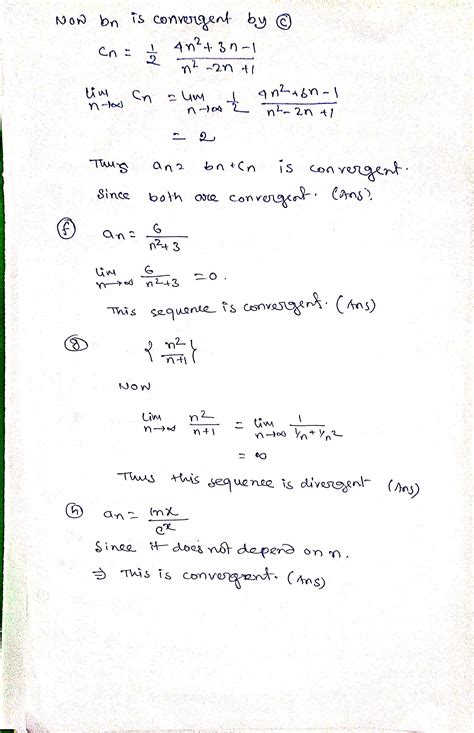 Now bn is convergent by ©
Cn = 1/2 (4n²+3n-1)/(n²-2n+1)
lim n→∞ Cn = lim n→∞ 1/2 (4n²+6n-1)/(n²-2n+1)
= 2
Thus an = bn+Cn is convergent.
Since both are convergent. (Ans).
(f) an = 6/(n²+3)
lim n→∞ 6/(n²+3) = 0.
This sequence is convergent. (Ans)
(g) {n²/(n+1)}
Now
lim n→∞ n²/(n+1) = lim n→∞ 1/(1/n + 1/n²)
= ∞
Thus this sequence is divergent (Ans)
(h) an = lnx/e^x
Since it does not depend on n.
⇒ This is convergent. (Ans)